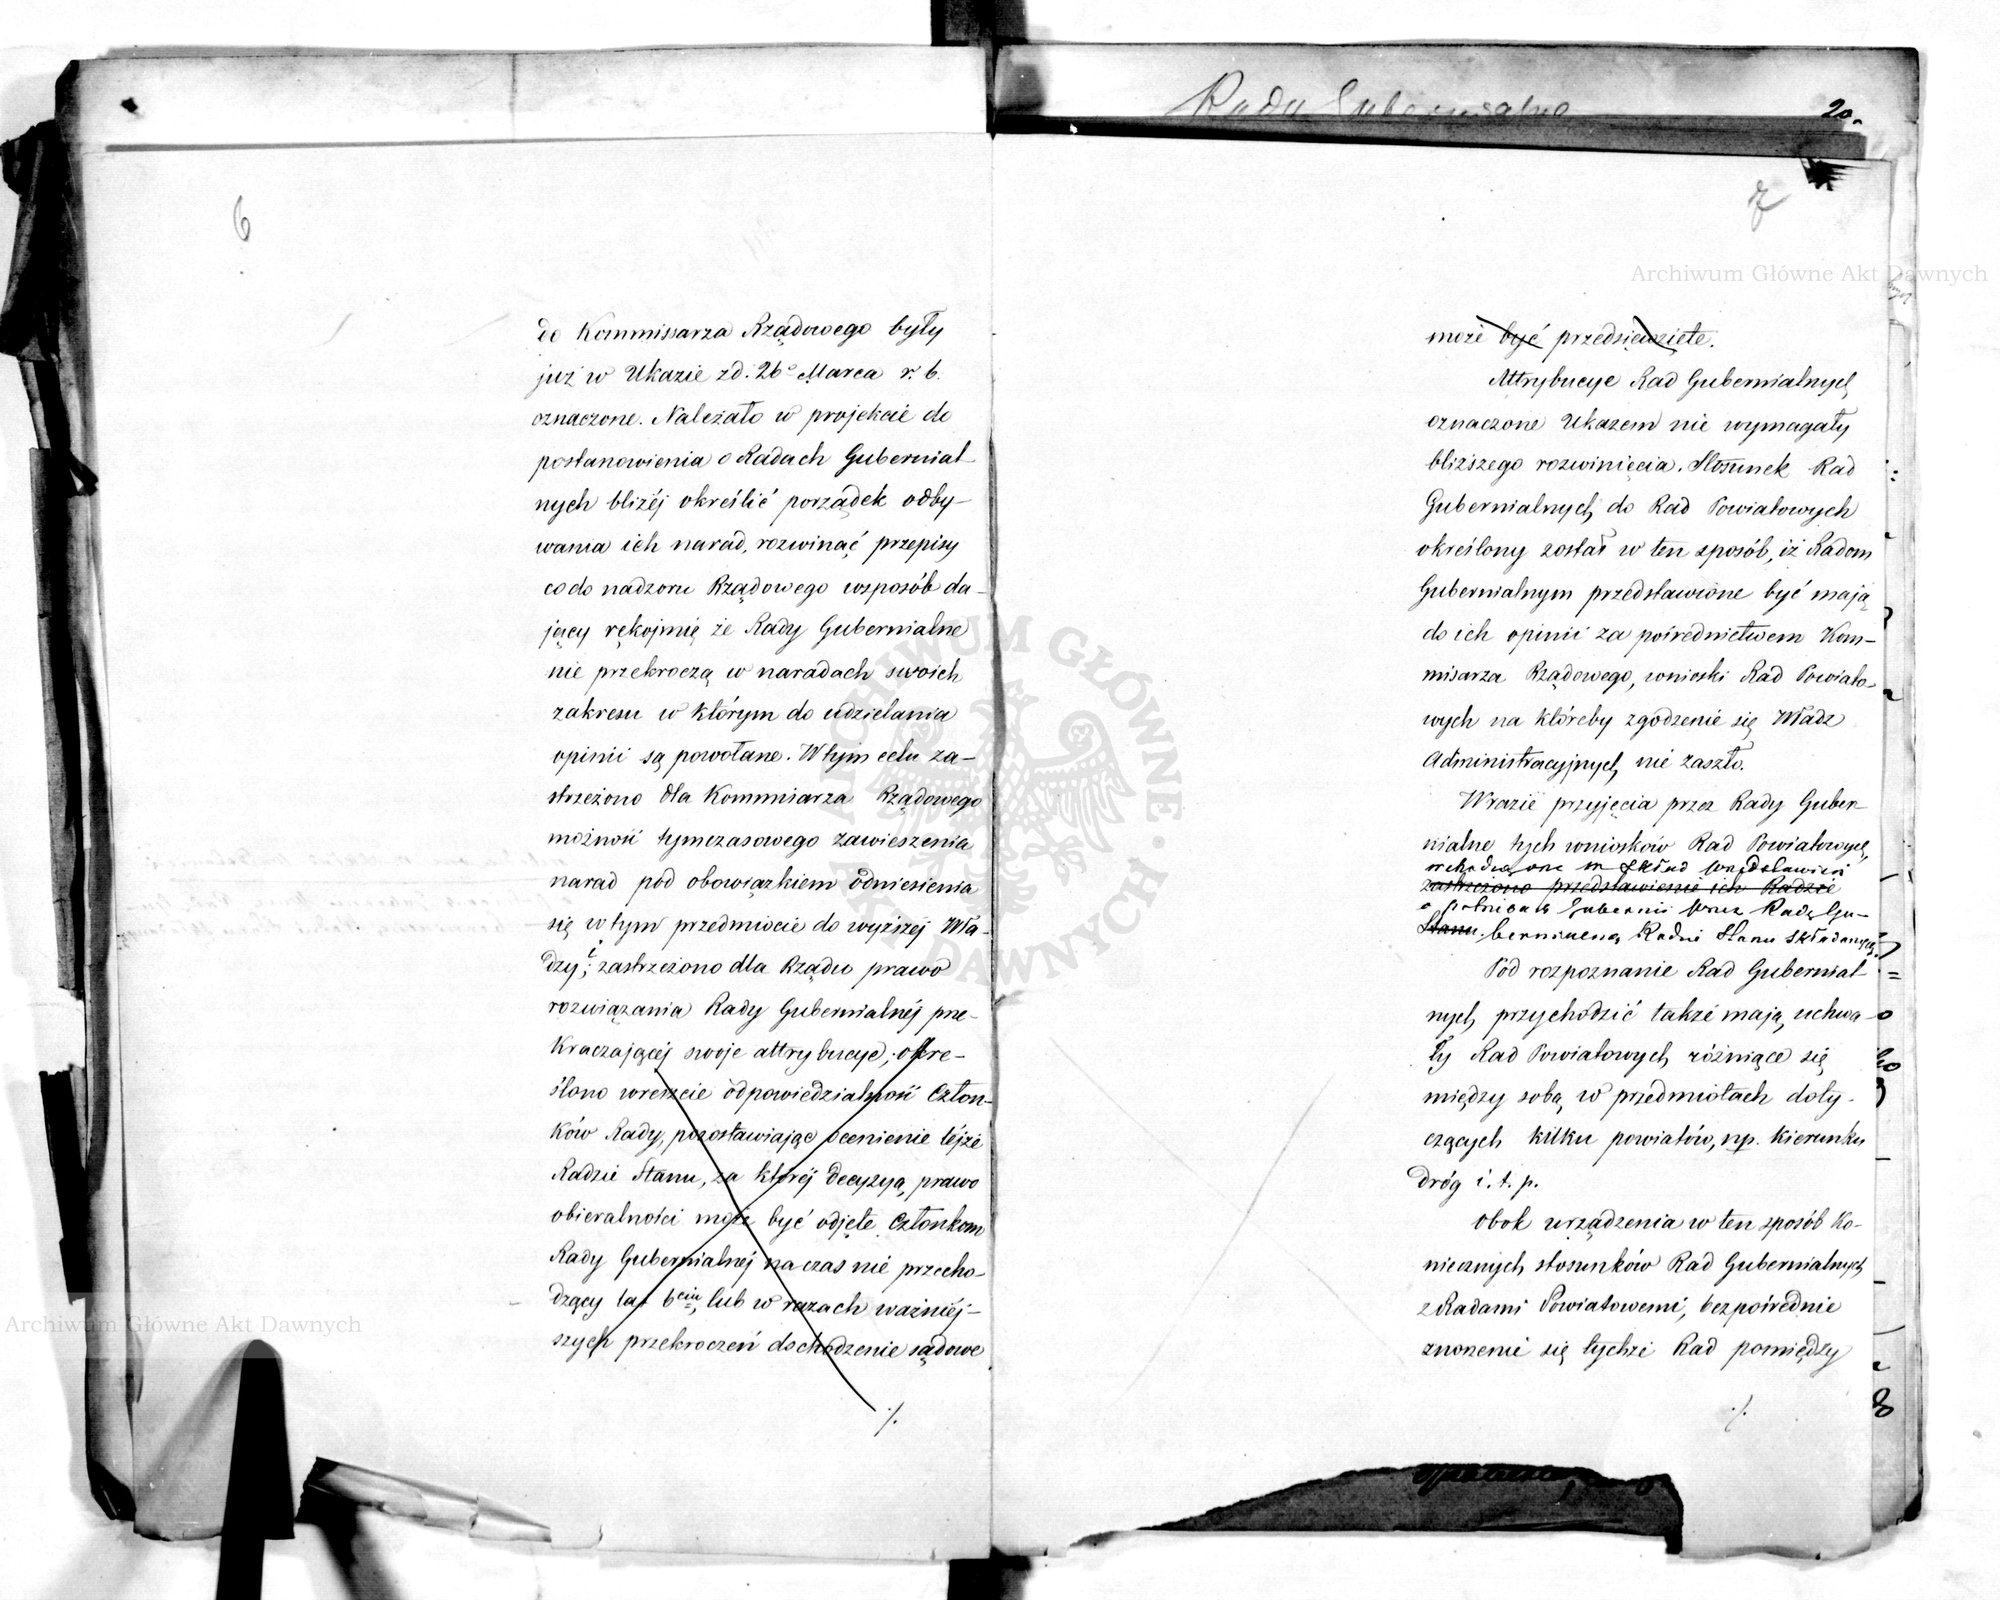 6
do Kommissarza Rządowego były
już w Ukazie z d. 26º Marca r. b.
oznaczone. Należało w projekcie do
postanowienia o Radach Gubernial
nych bliżéj określić porządek odby-
wania ich narad, rozwinąć przepisy
co do nadzoru Rządowego w sposób da-
jący rękojmię że Rady Gubernialne
nie przekroczą w naradach swoich
zakresu w którym do udzielania
opinii są powołane. W tym celu za-
strzeżono dla Kommisarza Rządowego
możność tymczasowego zawieszenia
narad pod obowiązkiem odniesienia
się w tym przedmiocie do wyższéj Wła-
dzy; i zastrzeżono dla Rządu prawo
rozwiązania Rady Gubernialnéj prze-
kraczającéj swoje attrybucye; okre-
ślono wreszcie odpowiedzialność Człon-
ków Rady, pozostawiając ocenienie téjże
Radzie Stanu, za któréj decyzyą, prawo
obieralności może być odjęte Członkom
Rady Gubernialnéj na czas nie przecho-
dzący lat 6ciu, lub w razach ważniéj-
szych przekroczeń dochodzenie sądowe
./.
Rada Gubernialna
20.
7
może być przedsięwzięte.
Attrybucye Rad Gubernialnych
oznaczone Ukazem nie wymagały
bliższego rozwinięcia. Stosunek Rad
Gubernialnych do Rad Powiatowych
określony został w ten sposób, iż Radom
Gubernialnym przedstawione być mają
do ich opinii za pośrednictwem Kom-
misarza Rządowego, wnioski Rad Powiato-
wych na któreby zgodzenie się Władz
Administracyjnych nie zaszło.
W razie przyjęcia przez Rady Guber-
nialne tych wniosków Rad Powiatowych
wchodzą one w skład przedstawień
zastrzeżono przedstawienie ich Radzie
o potrzebach Gubernii przez Radę Gu-
Stanu. bernialną Radzie Stanu składanych.
Pod rozpoznanie Rad Gubernial
nych przychodzić także mają uchwa-
ły Rad Powiatowych różniące się
między sobą w przedmiotach doty-
czących kilku powiatów, np. kierunku
dróg i. t. p.
Obok urządzenia w ten sposób ko-
niecznych stosunków Rad Gubernialnych
z Radami Powiatowemi, bezpośrednie
znoszenie się tychże Rad pomiędzy
./.
Archiwum Główne Akt Dawnych
Archiwum Główne Akt Dawnych
ARCHIWUM GŁÓWNE AKT DAWNYCH